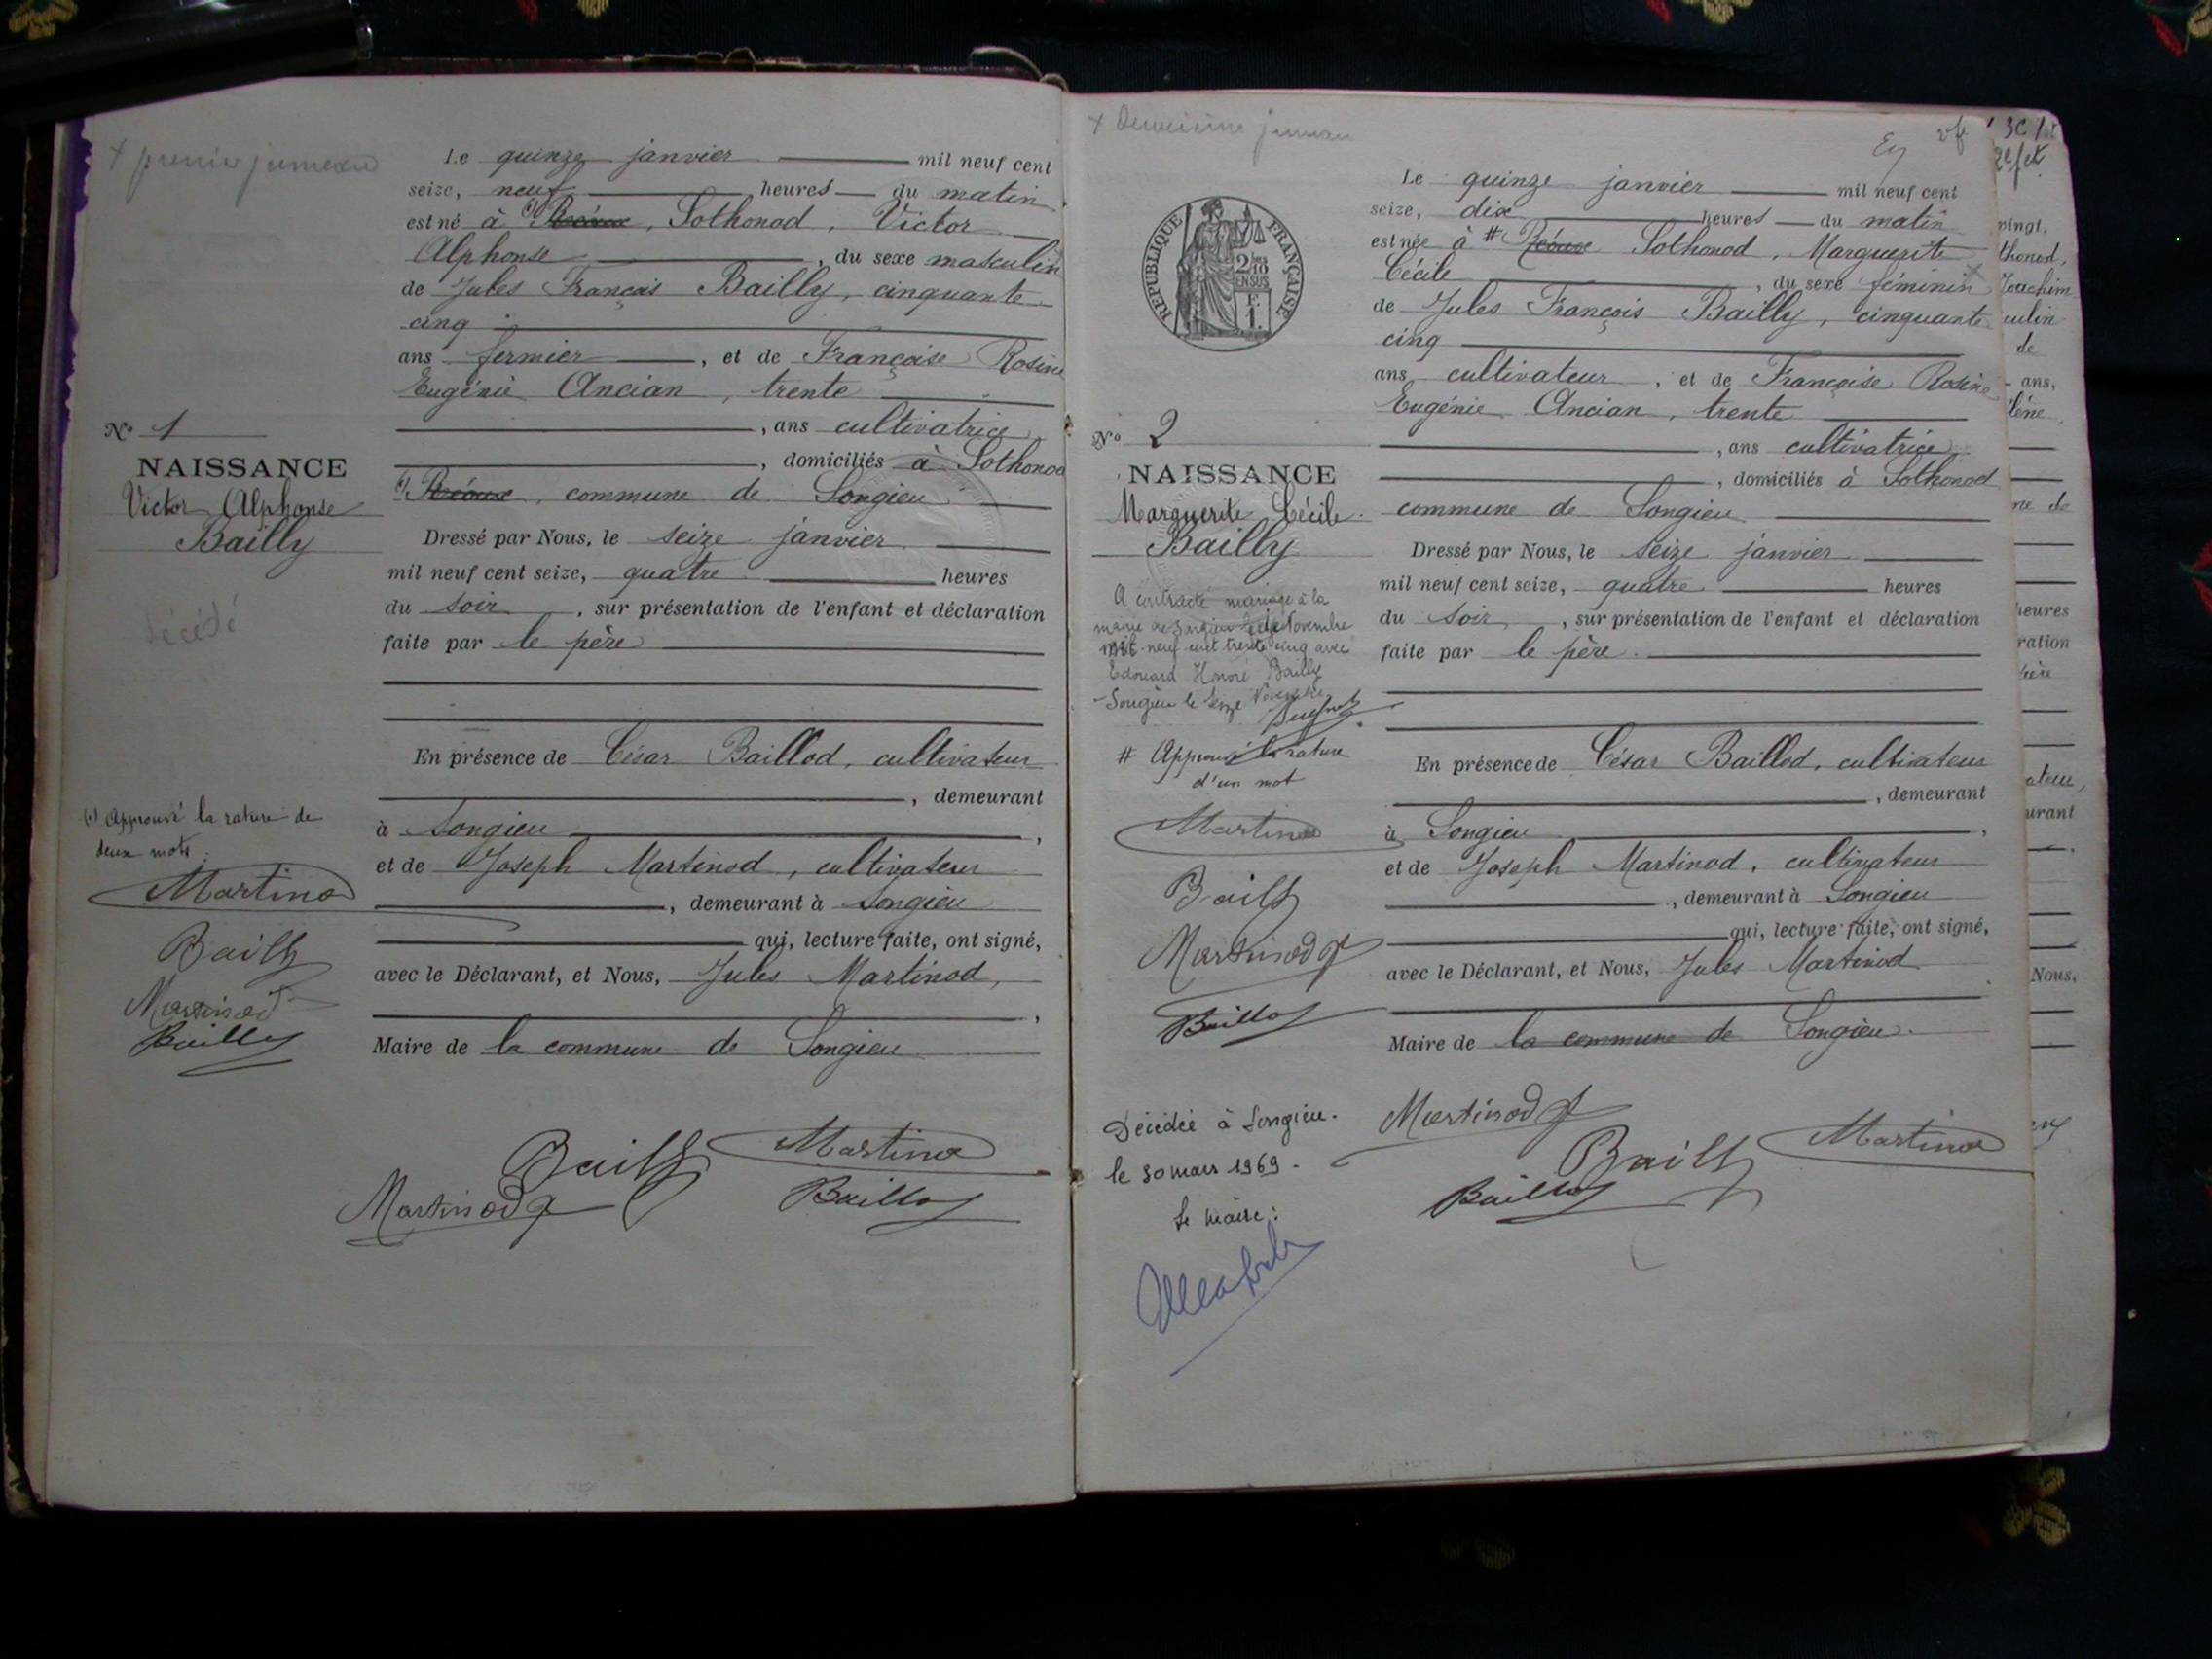 + premier jumeau
Le quinze janvier mil neuf cent
seize, neuf heures du matin
est né à (1) Sothonod, Victor
Alphonse, du sexe masculin
de Jules François Bailly, cinquante
cinq
ans fermier, et de Françoise Rosine
Eugénie Ancian, trente
, ans cultivatrice
, domiciliés à Sothonod
(1) commune de Songieu
N° 1
NAISSANCE
Victor Alphonse
Bailly
décédé
Dressé par Nous, le seize janvier
mil neuf cent seize, quatre heures
du soir, sur présentation de l'enfant et déclaration
faite par le père
En présence de César Baillod, cultivateur
, demeurant
à Songieu,
et de Joseph Martinod, cultivateur
, demeurant à Songieu
qui, lecture faite, ont signé,
avec le Déclarant, et Nous, Jules Martinod,
,
Maire de la commune de Songieu
(1) Approuvé la rature de
deux mots.
Martinod
Bailly
Martinod
Baillod
Bailly Martinod
Martinod J Baillod
+ Deuxième jumeau
RÉPUBLIQUE FRANÇAISE
2/10
EN SUS
F.
1.
Le quinze janvier mil neuf cent
seize, dix heures du matin
est née à # Sothonod, Marguerite
Cécile, du sexe féminin
de Jules François Bailly, cinquante
cinq
ans cultivateur, et de Françoise Rosine
Eugénie Ancian, trente
, ans cultivatrice
, domiciliés à Sothonod
commune de Songieu
N° 2
NAISSANCE
Marguerite Cécile
Bailly
A contracté mariage à la
mairie de Songieu le Novembre
mil neuf cent trente cinq avec
Edouard Honoré Bailly
Songieu le seize Novembre
# Approuvé la rature
d'un mot
Martinod
Bailly
Martinod J
Baillod
Dressé par Nous, le seize janvier
mil neuf cent seize, quatre heures
du soir, sur présentation de l'enfant et déclaration
faite par le père.
En présence de César Baillod, cultivateur
, demeurant
à Songieu,
et de Joseph Martinod, cultivateur
, demeurant à Songieu
qui, lecture faite, ont signé,
avec le Déclarant, et Nous, Jules Martinod
Maire de la commune de Songieu.
Décédée à Songieu.
le 30 mars 1969.
Le Maire:
Martinod J
Bailly Martinod
Baillod
vingt,
thonod,
Joachim
culin
de
ans,
lène,
ne de
heures
ration
père
ateur,
urant
Nous,